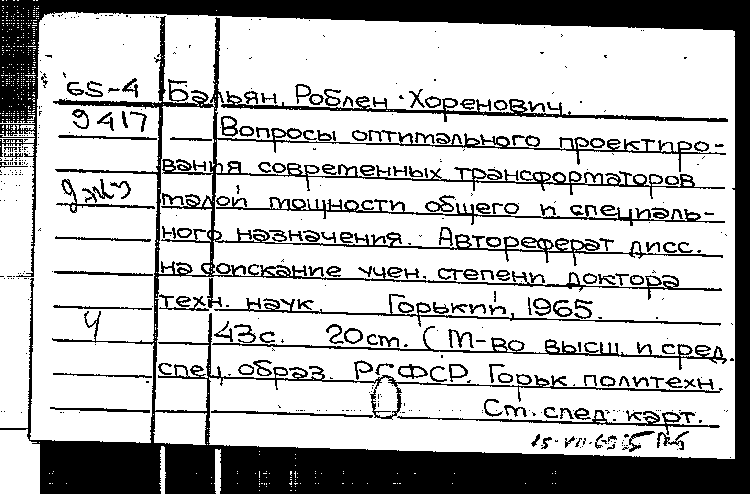 65-4 Бальян, Роблен Хоренович.
9417 Вопросы оптимального проектиро-
вания современных трансформаторов
малой мощности общего и специаль-
ного назначения. Автореферат дисс.
на соискание учен. степени доктора
техн. наук. Горький, 1965.
43с. 20см. (М-во высш. и сред.
спец. образ. РСФСР. Горьк. политехн.
См. след. карт.